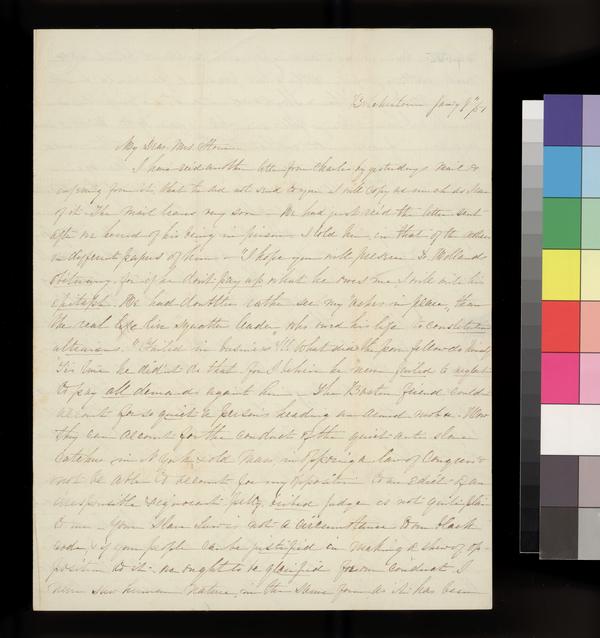 Jany 9th 51
My Dear Mrs.
I have recd another letter from Charlie by yesterdays mail &
from it, that he did not send to you I will copy as much as I can
of it. The mail leaves very soon — We had just recd the letter sent
after we heard of his being in prison — I told him in that of the
in different papers of him — "I hope you will preserve Dr
obituary, for if he dont pay up what he owes me I will write his
epitaph. We had doubtless rather see my in peace, than
the real live Squatter leader, who owed his life to
"Failed in business"!!! What did the poor fellow do
he didnt do that for I believe he never failed to neglect
to pay all demands against him — The Boston friend could
account for so quiet a person heading an armed mob. How
they can account for the conduct of the quiet anti slave
catcher in N York & old Mass, in opposing a law of Congress
not be able to account for my opposition to an edict of an
irresponsible & ignorant petty judge is not quite plain
to me. Your Slave law is not a circumstance to our black
code, & if your people can be justified in making a show of op-
position to it we ought to be glorified from conduct I
never saw human nature, in the same form as it has been